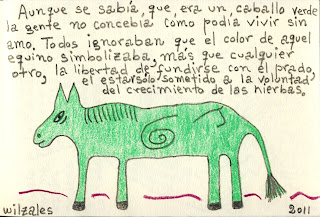 Aunque se sabía, que era un caballo verde
la gente no concebía cómo podía vivir sin
amo. Todos ignoraban que el color de aquel
equino simbolizaba, más que cualquier
otro, la libertad de fundirse con el prado,
el estar sólo sometido a la voluntad
del crecimiento de las hierbas.
wilzales
2011